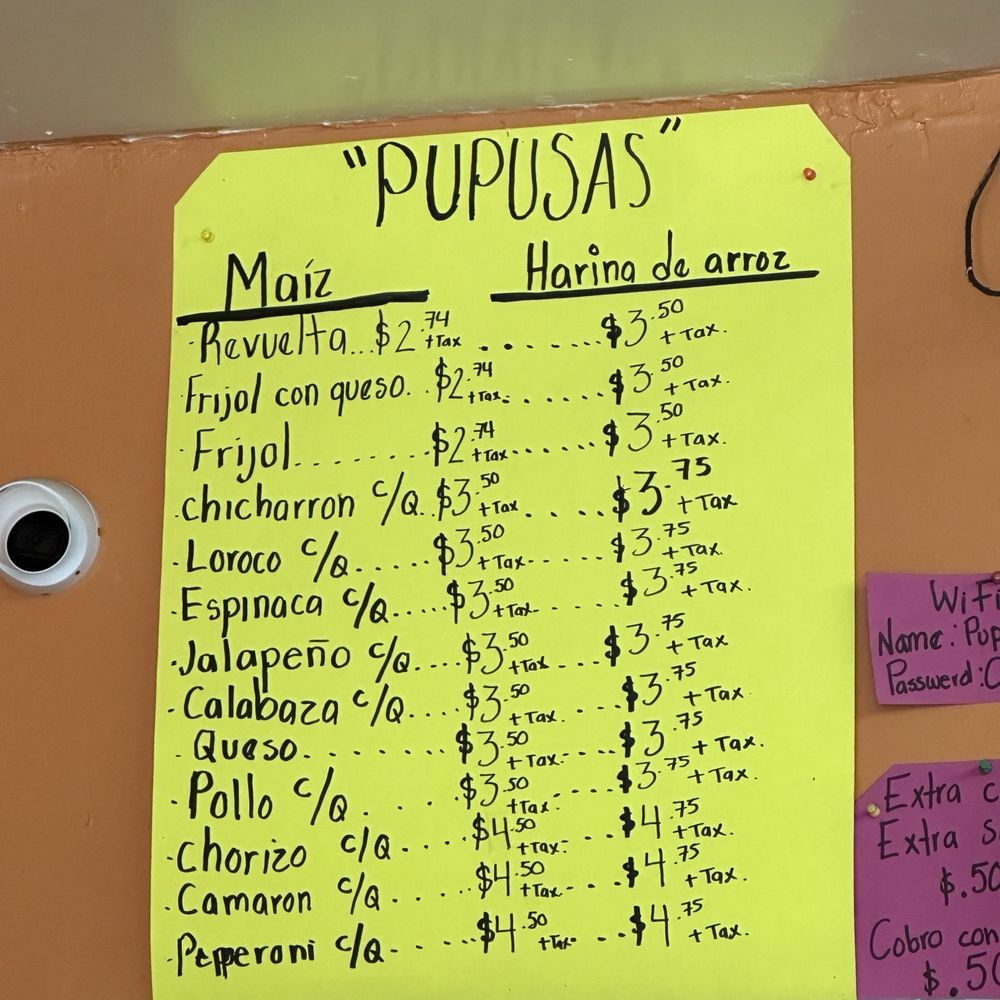 "PUPUSAS"
Maíz Harina de arroz
·Revuelta...$2.74 +Tax.......$3.50 +Tax.
·Frijol con queso..$2.74 +Tax.......$3.50 +Tax.
·Frijol........$2.74 +Tax.......$3.50 +Tax.
·chicharron c/Q..$3.50 +Tax....$3.75 +Tax
·Loroco c/Q.....$3.50 +Tax......$3.75 +Tax.
·Espinaca c/Q.....$3.50 +Tax.....$3.75 +Tax.
·Jalapeño c/Q....$3.50 +Tax...$3.75 +Tax
·Calabaza c/Q....$3.50 +Tax....$3.75 +Tax
Queso........$3.50 +Tax....$3.75 +Tax.
·Pollo c/Q....$3.50 +Tax....$3.75 +Tax.
·Chorizo c/Q....$4.50 +Tax...$4.75 +Tax.
·Camaron c/Q....$4.50 +Tax...$4.75 +Tax.
·Pepperoni c/Q.....$4.50 +Tax..$4.75 +Tax.
WiFi
Name: Pup
Passwerd:
Extra
Extra
$.50
Cobro con
$.50